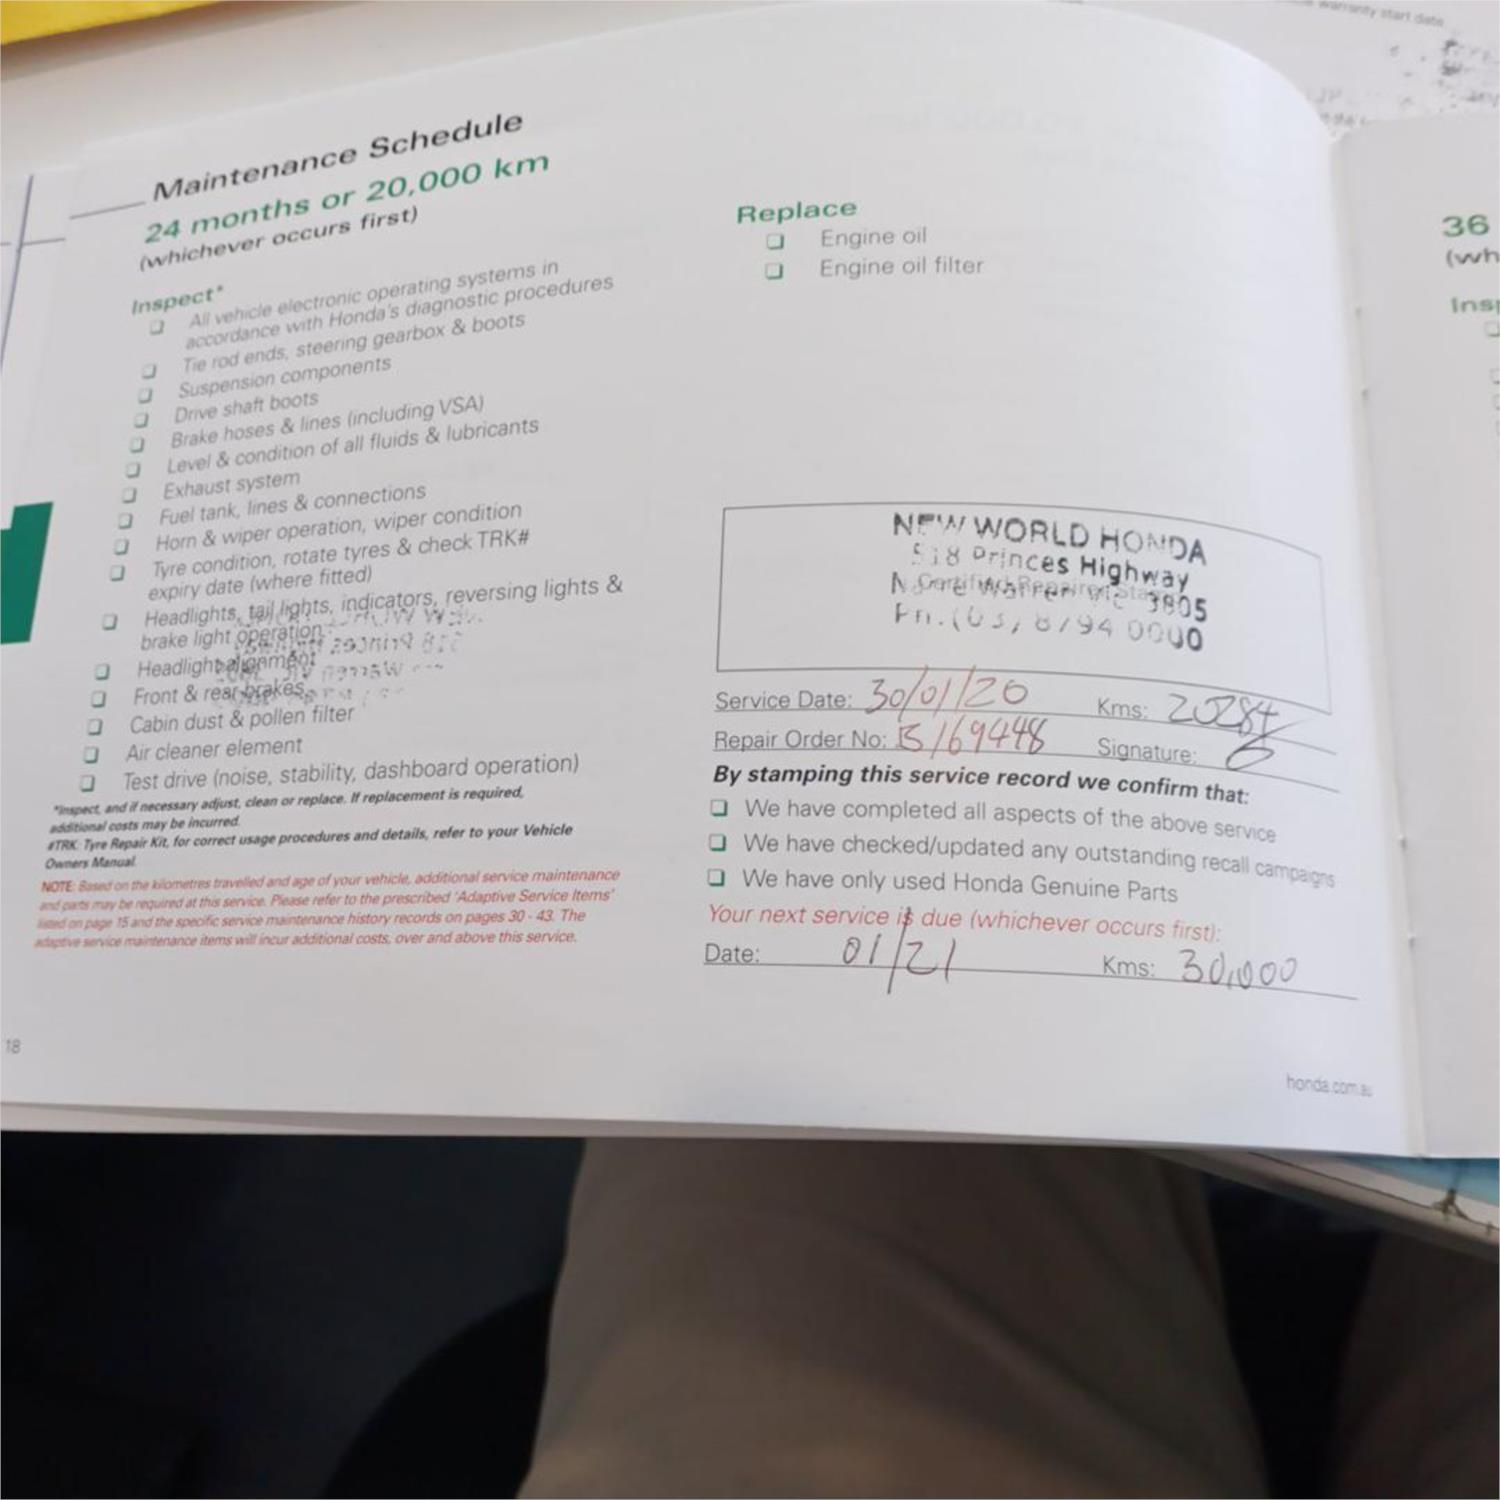 warranty start date
Maintenance Schedule
24 months or 20,000 km
(whichever occurs first)
Inspect*
All vehicle electronic operating systems in
accordance with Honda's diagnostic procedures
Tie rod ends, steering gearbox & boots
Suspension components
Drive shaft boots
Brake hoses & lines (including VSA)
Level & condition of all fluids & lubricants
Exhaust system
Fuel tank, lines & connections
Horn & wiper operation, wiper condition
Tyre condition, rotate tyres & check TRK#
expiry date (where fitted)
Headlights, tail lights, indicators, reversing lights &
brake light operation
Headlight alignment
Front & rear brakes
Cabin dust & pollen filter
Air cleaner element
Test drive (noise, stability, dashboard operation)
*Inspect, and if necessary adjust, clean or replace. If replacement is required,
additional costs may be incurred.
#TRK: Tyre Repair Kit, for correct usage procedures and details, refer to your Vehicle
Owners Manual.
NOTE: Based on the kilometres travelled and age of your vehicle, additional service maintenance
and parts may be required at this service. Please refer to the prescribed 'Adaptive Service Items'
listed on page 15 and the specific service maintenance history records on pages 30 - 43. The
adaptive service maintenance items will incur additional costs, over and above this service.
18
Replace
Engine oil
Engine oil filter
NEW WORLD HONDA
518 Princes Highway
Certified Repairer Stamp
3805
Ph. (03) 8794 0000
Service Date: 30/01/20 Kms: 20284
Repair Order No: B169448 Signature:
By stamping this service record we confirm that:
We have completed all aspects of the above service
We have checked/updated any outstanding recall campaigns
We have only used Honda Genuine Parts
Your next service is due (whichever occurs first):
Date: 01/21 Kms: 30,000
honda.com.au
36